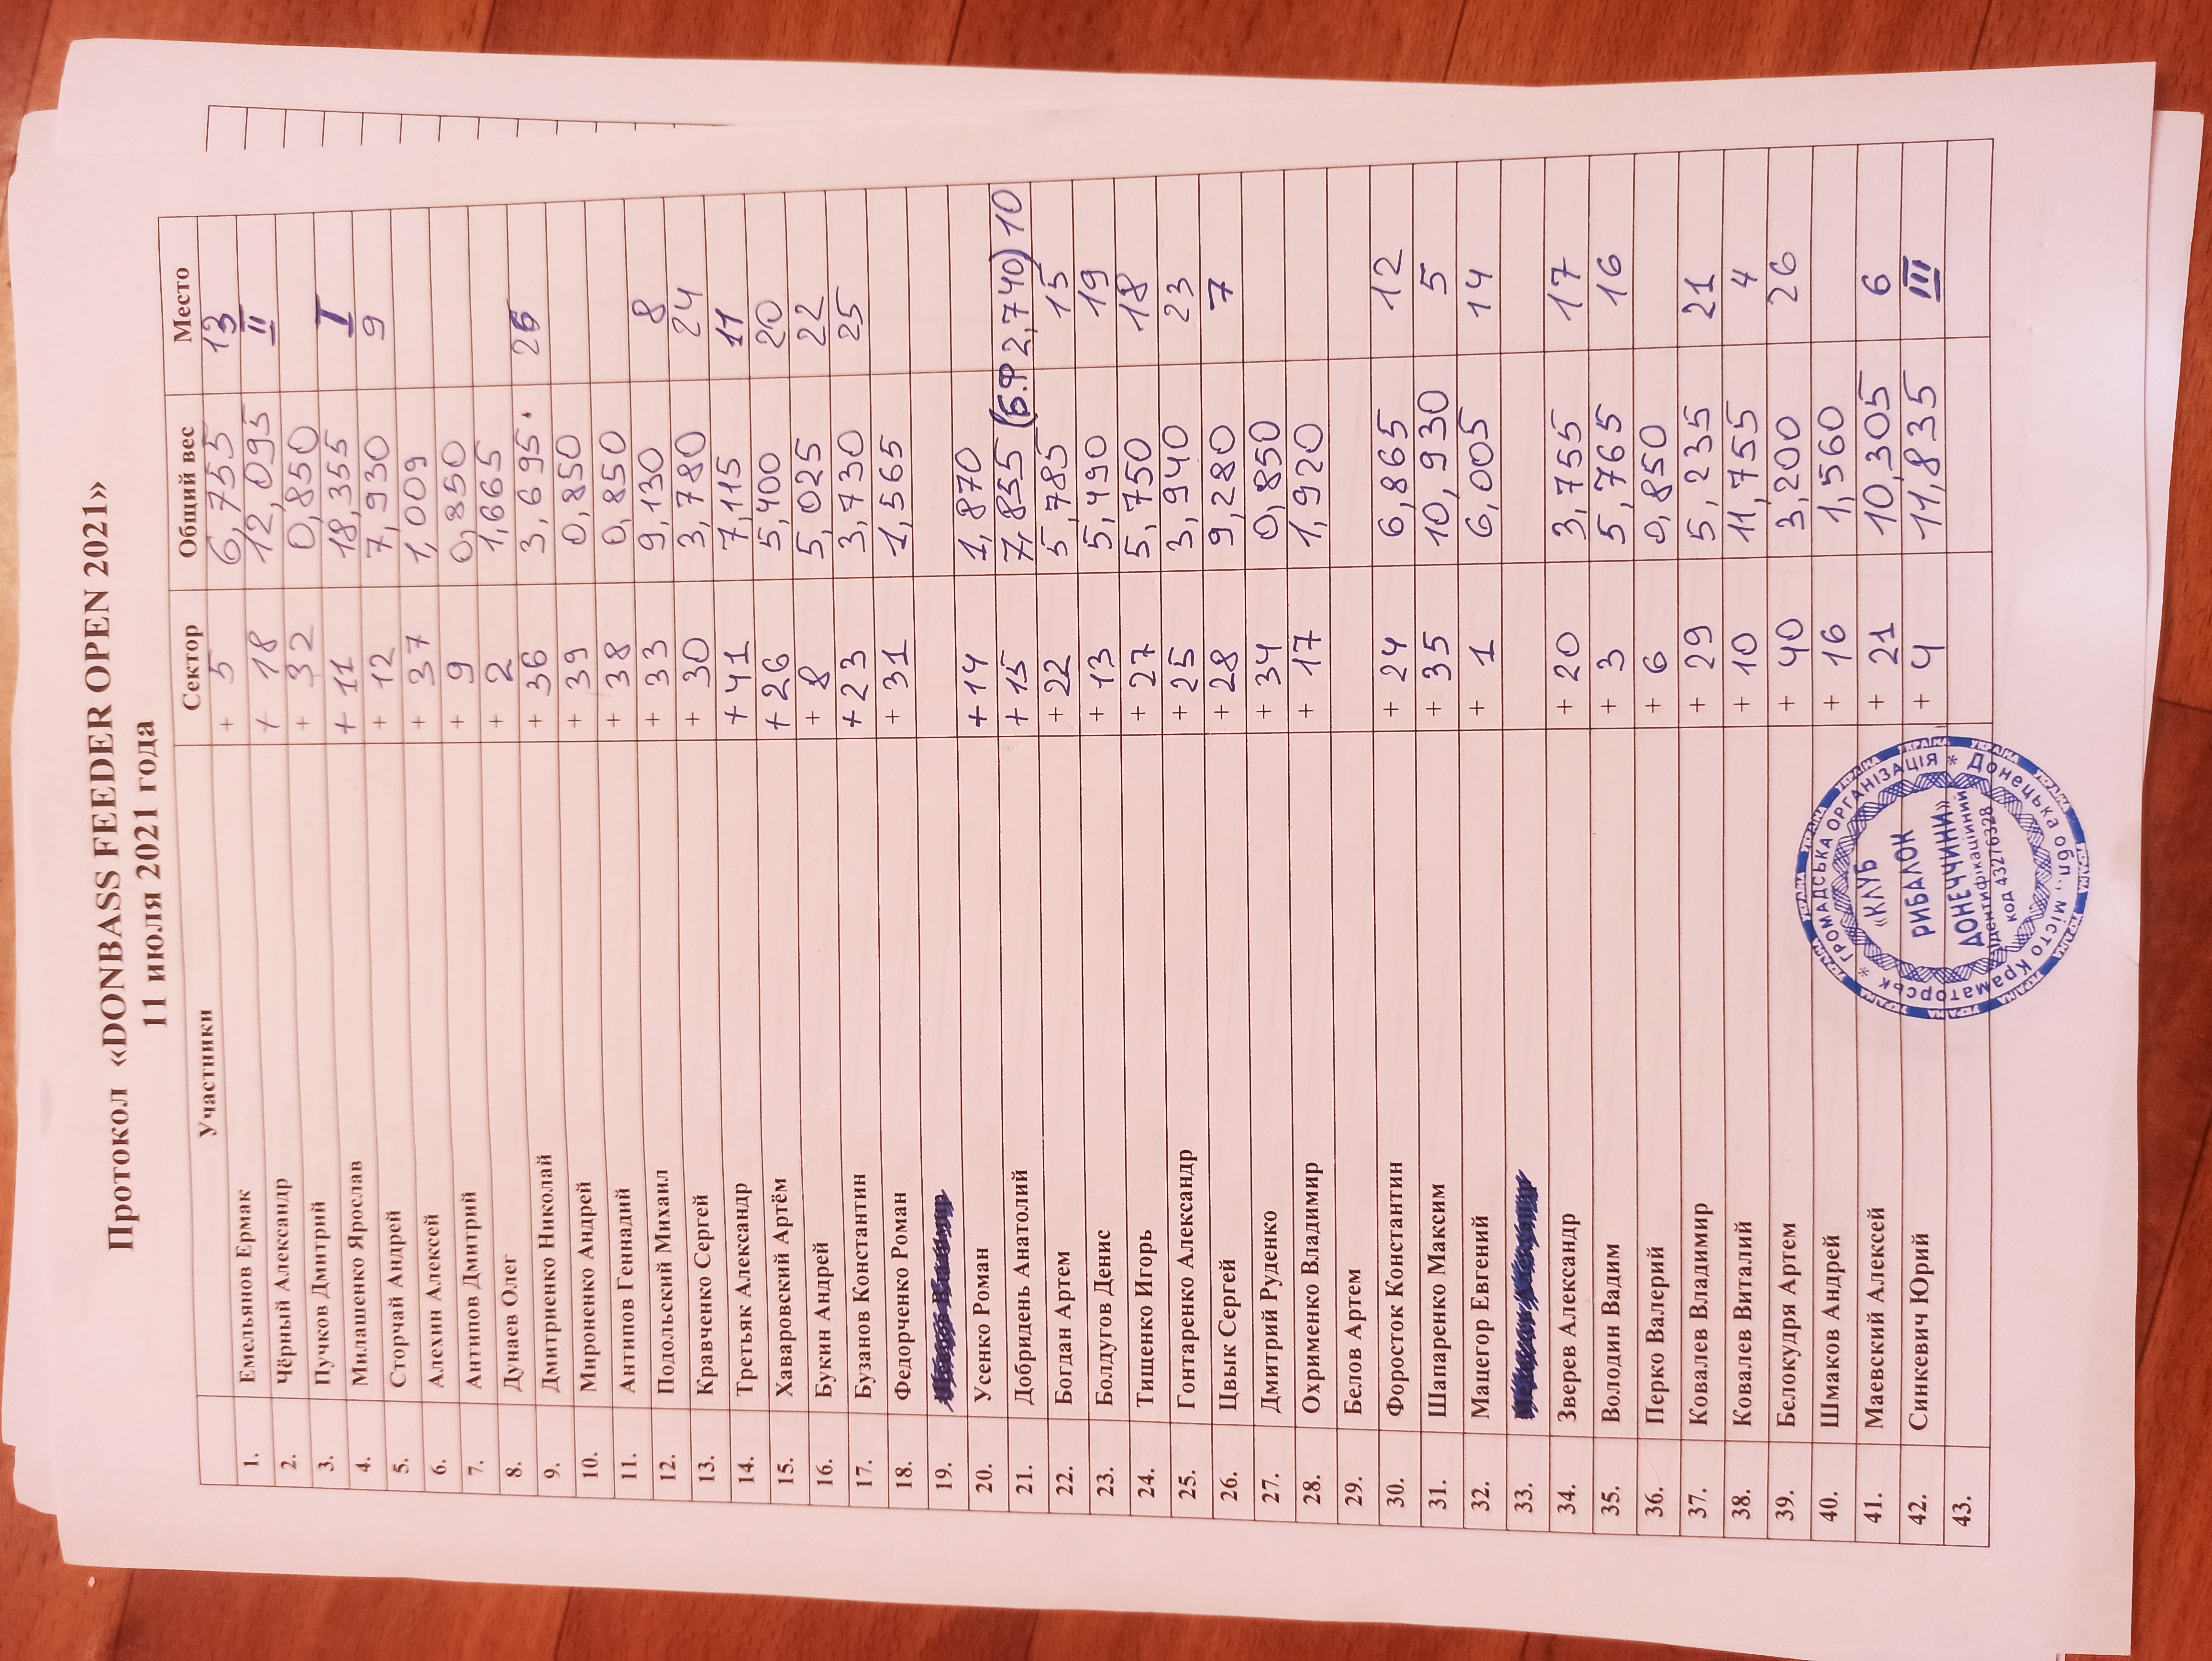 Протокол «DONBASS FEEDER OPEN 2021»
11 июля 2021 года
Участники Сектор Общий вес Место
1. Емельянов Ермак + 5 6,755 13
2. Чёрный Александр + 18 12,095 II
3. Пучков Дмитрий + 32 0,850
4. Милашенко Ярослав + 11 18,355 I
5. Сторчай Андрей + 12 7,930 9
6. Алехин Алексей + 37 1,009
7. Антипов Дмитрий + 9 0,850
8. Дунаев Олег + 2 1,665
9. Дмитриенко Николай + 36 3,695.
10. Мироненко Андрей + 39 0,850
11. Антипов Геннадий + 38 0,850
12. Подольский Михаил + 33 9,130 8
13. Кравченко Сергей + 30 3,780 24
14. Третьяк Александр + 41 7,115 11
15. Хаваровский Артём + 26 5,400 20
16. Букин Андрей + 8 5,025 22
17. Бузанов Константин + 23 3,730 25
18. Федорченко Роман + 31 1,565
19.
20. Усенко Роман + 14 1,870
21. Добридень Анатолий + 15 7,855 (Б.Р 2,740) 10
22. Богдан Артем + 22 5,785 15
23. Болдугов Денис + 13 5,490 19
24. Тищенко Игорь + 27 5,750 18
25. Гонтаренко Александр + 25 3,940 23
26. Цвык Сергей + 28 9,280 7
27. Дмитрий Руденко + 34 0,850
28. Охрименко Владимир + 17 1,920
29. Белов Артем
30. Форосток Константин + 24 6,865 12
31. Шапаренко Максим + 35 10,930 5
32. Мацегор Евгений + 1 6,005 14
33.
34. Зверев Александр + 20 3,755 17
35. Володин Вадим + 3 5,765 16
36. Перко Валерий + 6 0,850
37. Ковалев Владимир + 29 5,235 21
38. Ковалев Виталий + 10 11,755 4
39. Белокудря Артем + 40 3,200 26
40. Шмаков Андрей + 16 1,560
41. Маевский Алексей + 21 10,305 6
42. Синкевич Юрий + 4 11,835 III
43.
ГРОМАДСЬКА ОРГАНІЗАЦІЯ * Донецька обл., місто Краматорськ *
«КЛУБ
РИБАЛОК
ДОНЕЧЧИНИ»
Ідентифікаційний
код 43276328